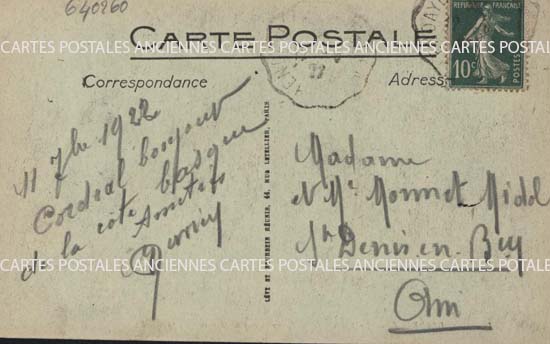 640260
CARTE POSTALE
Correspondance
Adresse
REPUBLIQUE FRANÇAISE
10c
POSTES
22
CARTES POSTALES ANCIENNES CARTES POSTALES ANCIENNES CARTES POSTALES
11 7bre 1922
Cordial bonjour
de la côte basque
Amitiés
LÉVY ET NEURDEIN RÉUNIS, 44, RUE LETELLIER, PARIS
Madame
et Mr Monnet, Midol
St Denis en Bug
Ain
CARTES POSTALES ANCIENNES CARTES POSTALES ANCIENNES CARTES POSTALES